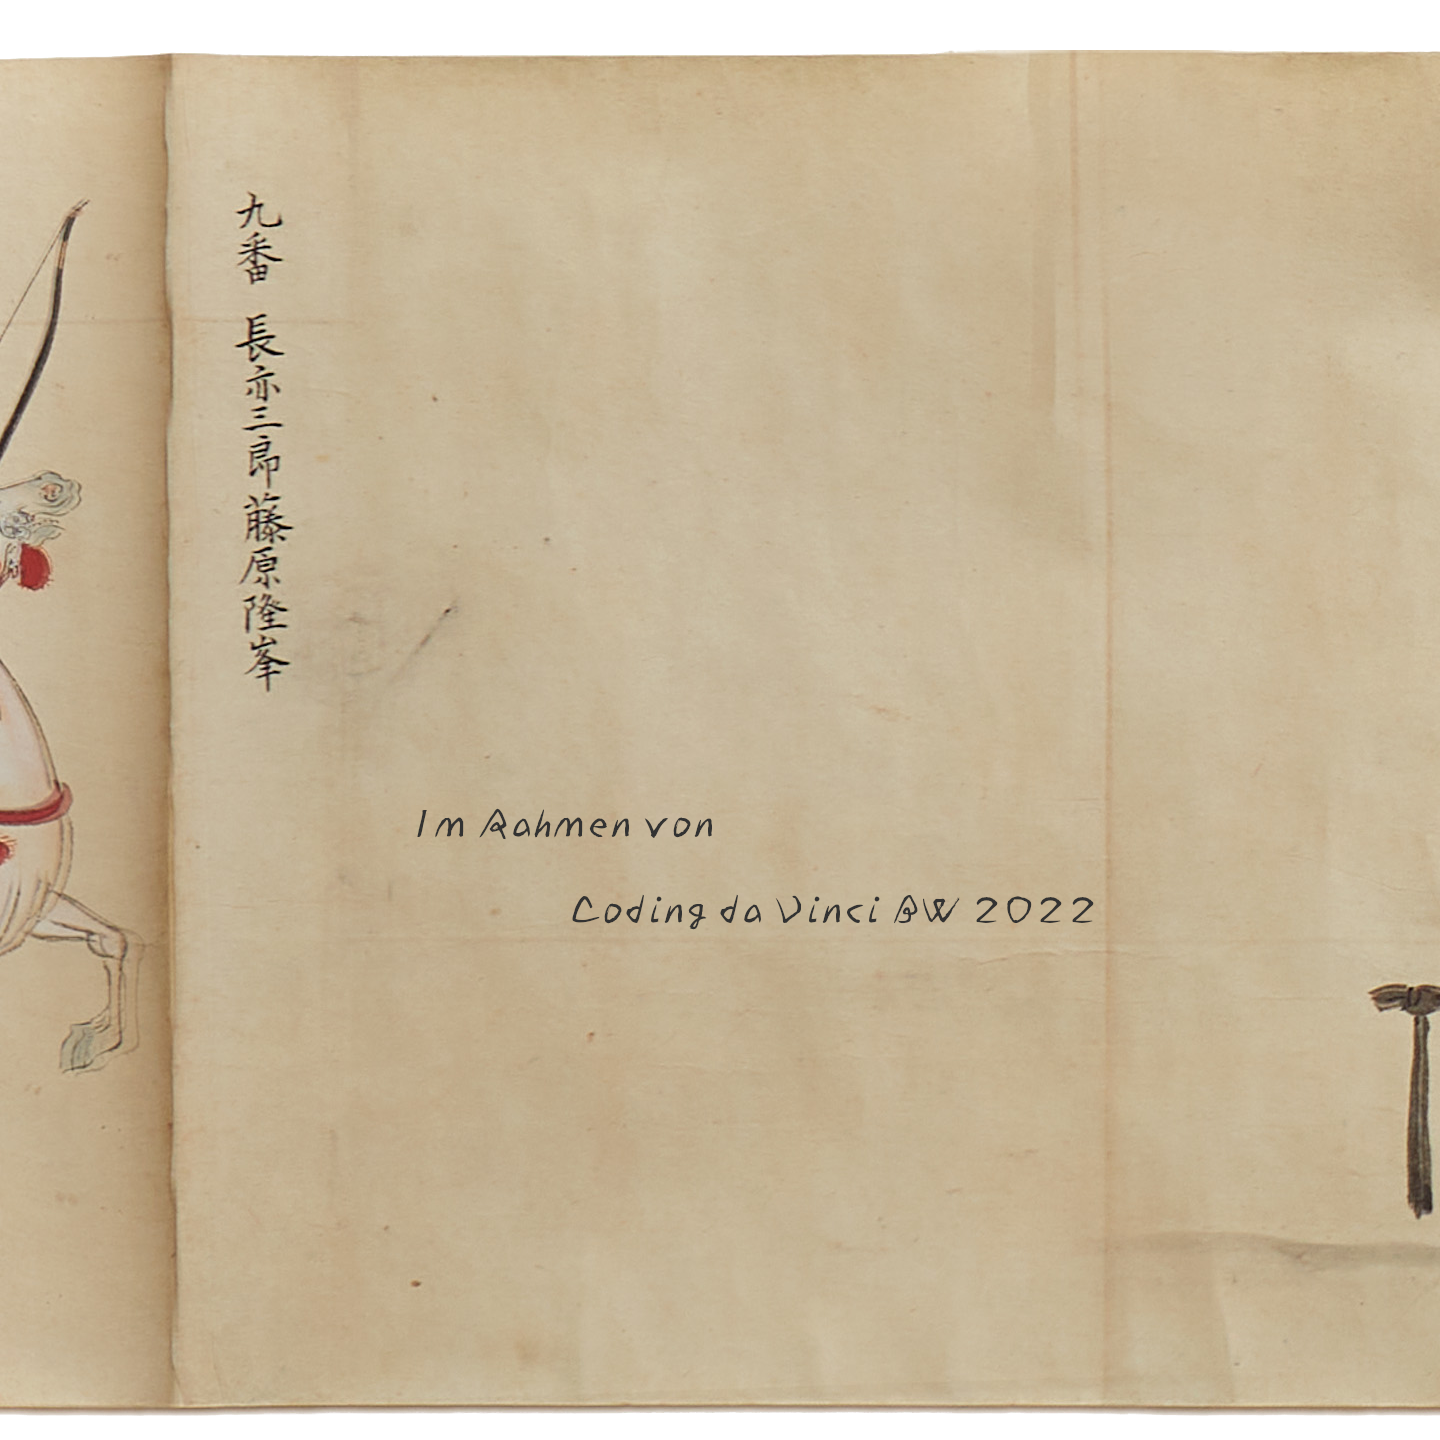 九番 長亦三郎藤原隆峯
Im Rahmen von
Coding da Vinci BW 2022